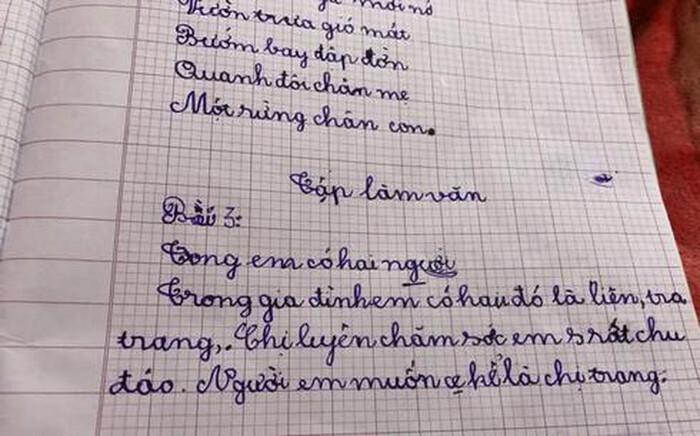 mới nở
Vườn trưa gió mát
Bướm bay dập dờn
Quanh đôi chân mẹ
Một rừng chân con.
Tập làm văn
Bài 3:
Tong em có hai người
Trong gia đình em có hau đó là liện, tra
trang,. Chị luyện chăm sóc em s rất chu
đáo. Người em muốn kể là chị trang.